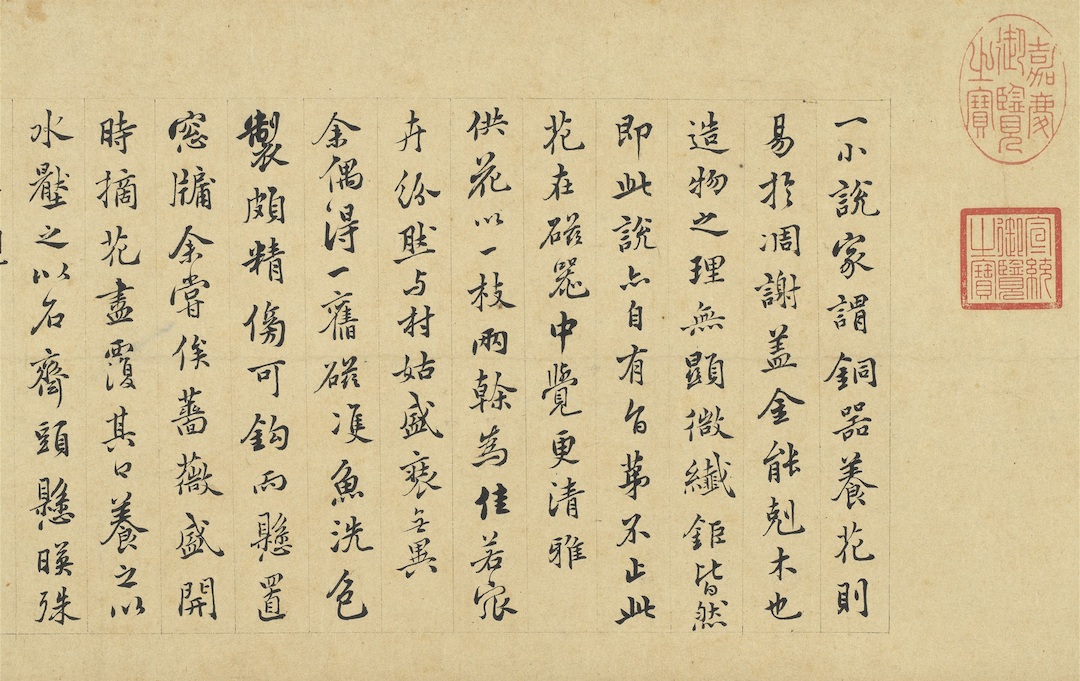 嘉慶御覽之寶
宣統御覽之寶
一小說家謂銅器養花則
易於凋謝盖金能剋木也
造物之理無顯微纖鉅皆然
即此說亦自有旨苐不止此
花在磁器中覺更清雅
供花以一枝兩榦為佳若眾
卉紛然与村姑盛無異
余偶得一舊磁雙魚洗色
製頗精傍可鈎而懸置
窓牖余嘗俟薔薇盛開
時摘花盡覆其口養之以
水壓之以石齋頭懸暎殊